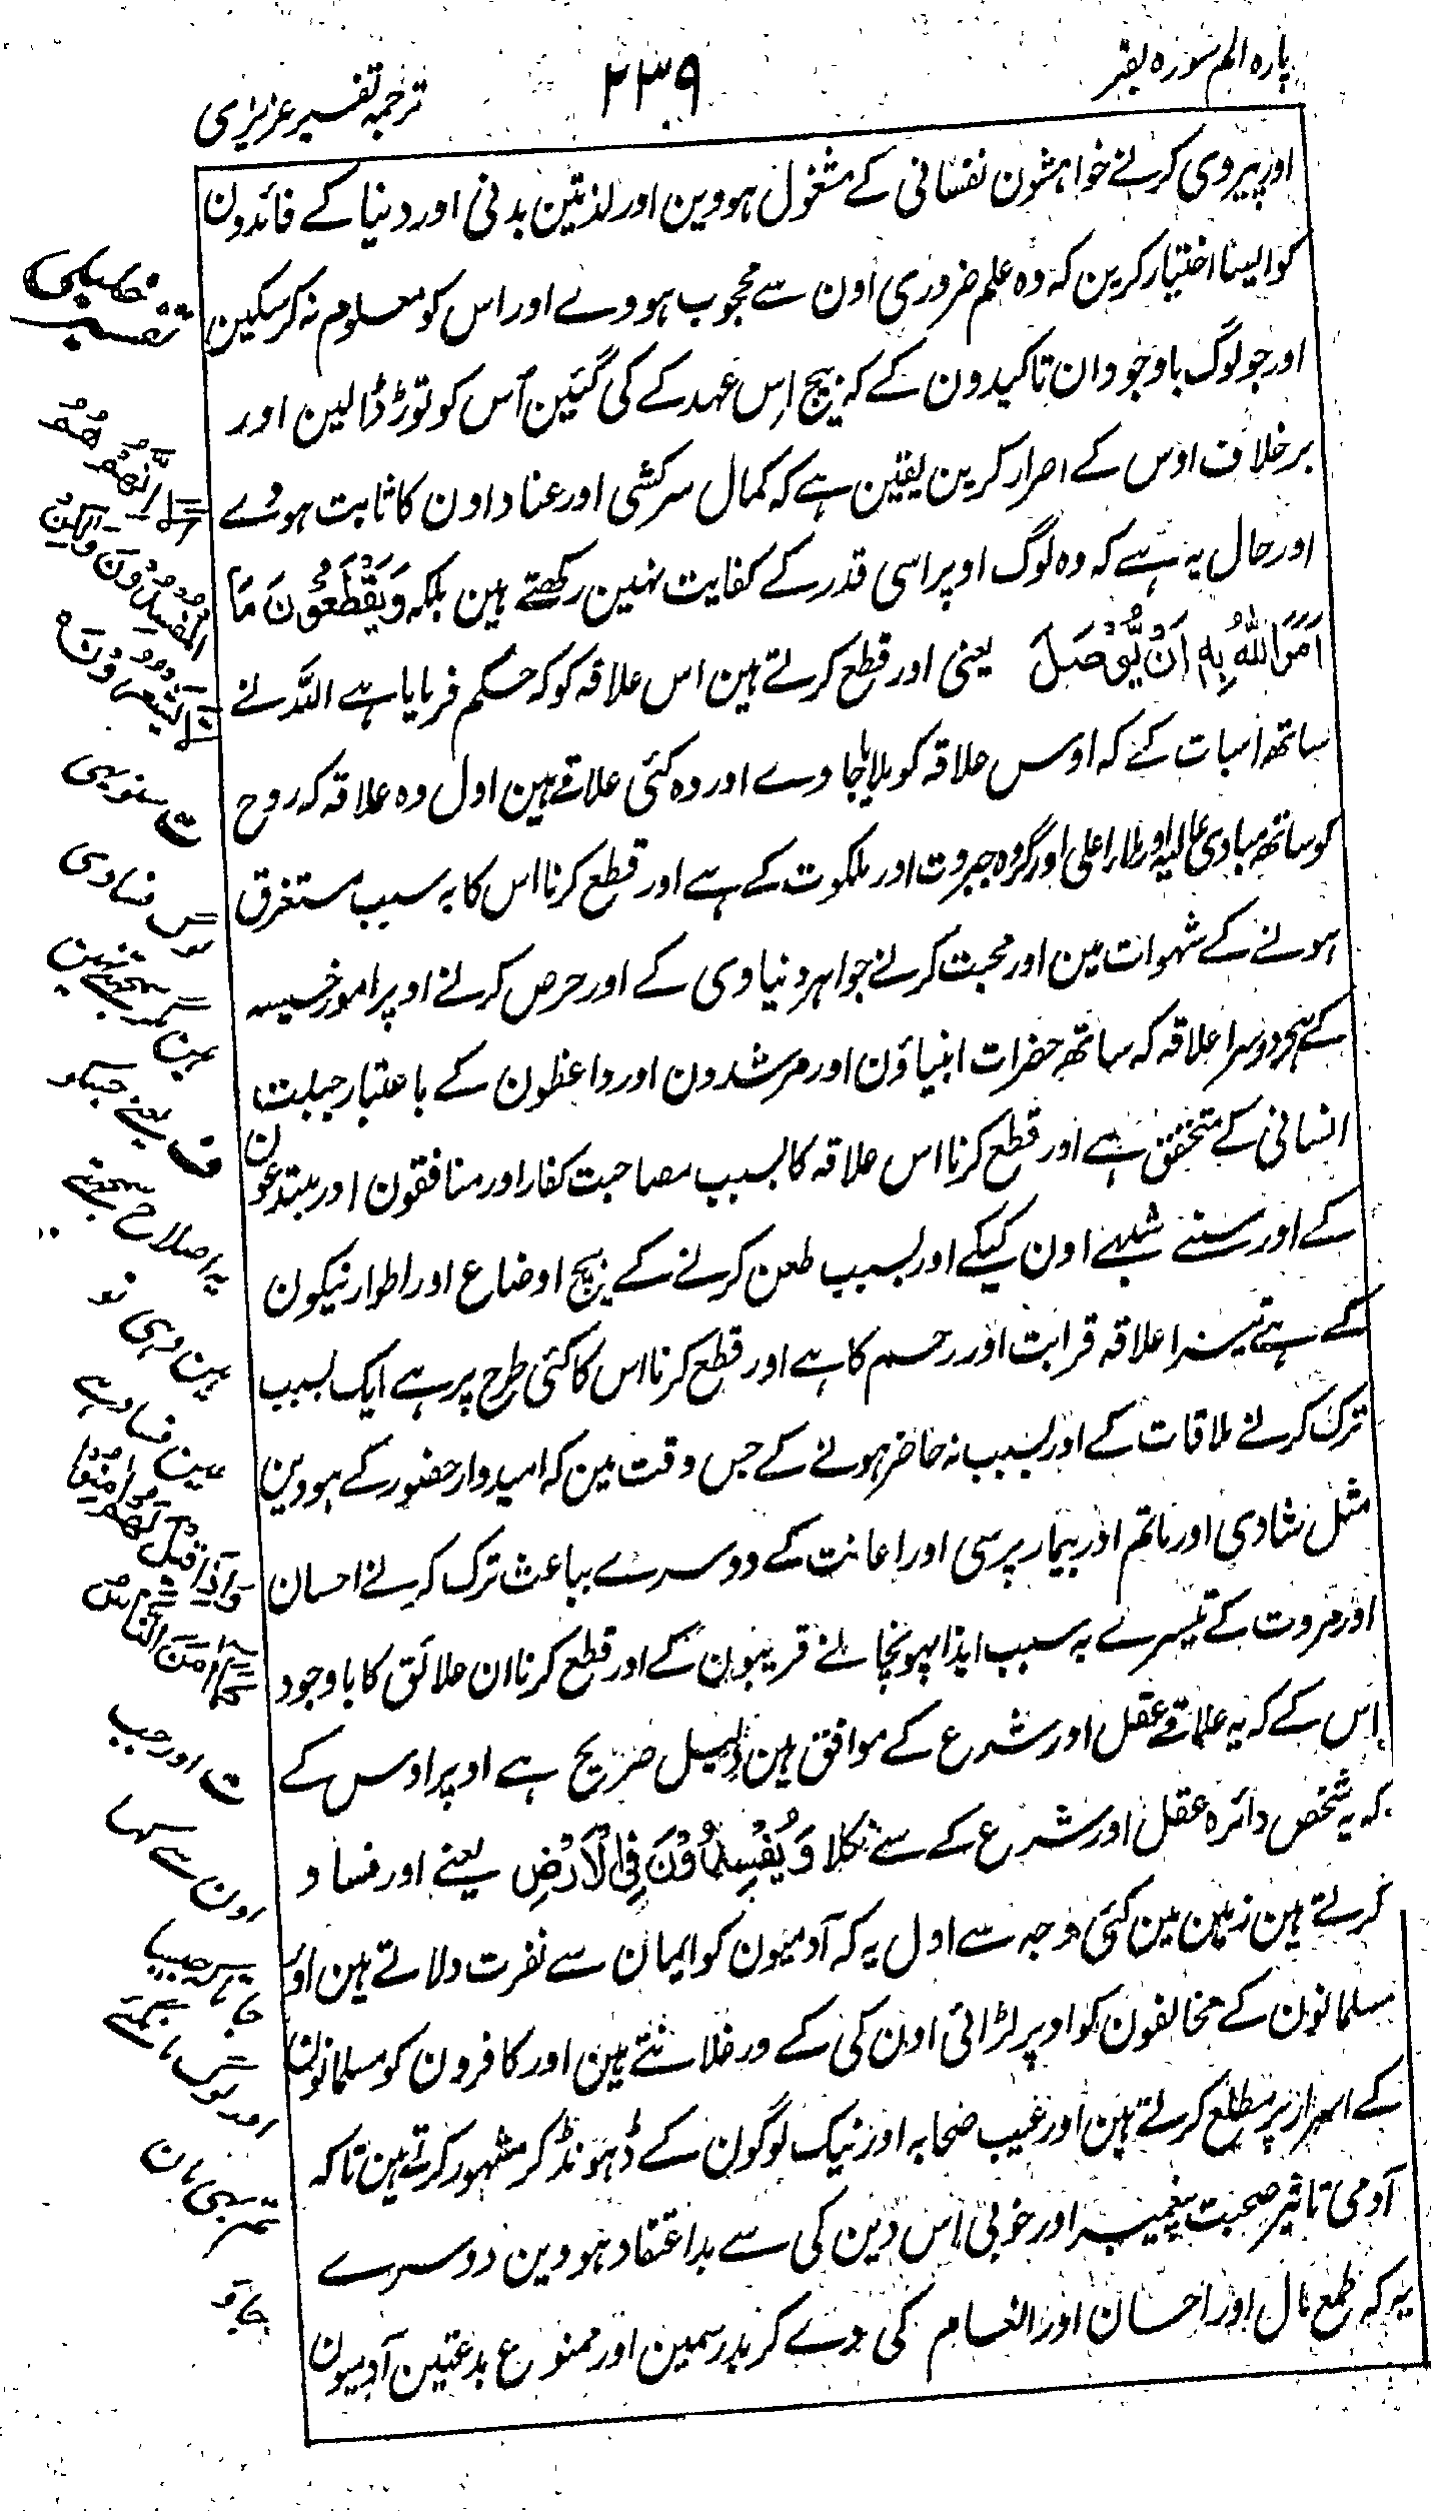 پارہ الم سورہ بقر
۲۳۹
ترجمہ تفسیر عزیزی
اور پیروی کرنے خواہشون نفسانی کے مشغول ہووین اور لذتین بدنی اور دنیا کے فائدون
کو ایسا اختیار کرین کہ وہ علم ضروری اون سے محجوب ہووے اور اس کو معلوم نہ کر سکین
اور جو لوگ باوجود ان تاکیدون کے کہ بیچ اِس عہد کے کی گئین اُس کو توڑ ڈالین اور
برخلاف اوس کے اصرار کرین یقین ہے کہ کمال سرکشی اور عناد اون کا ثابت ہوئے
اور حال یہ ہے کہ وہ لوگ اوپر اسی قدر کے کفایت نہین رکھتے ہین بلکہ وَيَقْطَعُوْنَ مَآ
اَمَرَ اللّٰهُ بِهٖ اَنْ يُّوْصَلَ یعنی اور قطع کرتے ہین اس علاقہ کو کہ حکم فرمایا ہے اللہ نے
ساتھ اسبات کے کہ اوس علاقہ کو ملایا جاوے اور وہ کئی علاقے ہین اول وہ علاقہ کہ روح
کو ساتھ مبادی عالیہ اور ملاء اعلی اور گروہ جبروت اور ملکوت کے ہے اور قطع کرنا اس کا بہ سبب مستغرق
ہونے کے شہوات مین اور محبت کرنے جواہر دنیاوی کے اور حرص کرنے اوپر امور خسیسہ
کے ہے دوسرا علاقہ کہ ساتھ حضرات انبیاؤن اور مرشدون اور واعظون کے باعتبار جبلت
انسانی کے متحقق ہے اور قطع کرنا اس علاقہ کا بسبب مصاحبت کفار اور منافقون اور مبتدعون
کے اور سننے شبہے اون کیکے اور بسبب طعن کرنے کے بیچ اوضاع اور اطوار نیکون
کے ہے تیسرا علاقہ قرابت اور رحم کا ہے اور قطع کرنا اس کا کئی طرح پر ہے ایک بسبب
ترک کرنے ملاقات کے اور بسبب نہ حاضر ہونے کے جس وقت مین کہ امیدوار حضور کے ہووین
مثل شادی اور ماتم اور بیمار پرسی اور اعانت کے دوسرے بباعث ترک کرنے احسان
اور مروت کے تیسرے بہ سبب ایذا پہونچانے قریبون کے اور قطع کرنا ان علائق کا باوجود
اِس کے کہ یہ علاقے عقل اور شرع کے موافق ہین دلیل صریح ہے اوپر اوس کے
کہ یہ شخص دائرہ عقل اور شرع کے سے نکلا وَيُفْسِدُوْنَ فِي الْاَرْضِ یعنے اور فساد
کرتے ہین زمین مین کئی وجہ سے اول یہ کہ آدمیون کو ایمان سے نفرت دلاتے ہین اور
مسلمانون کے مخالفون کو اوپر لڑائی اون کی کے ورغلاتے ہین اور کافرون کو مسلمانون
کے اسرار پر مطلع کرتے ہین اور عیب صحابہ اور نیک لوگون کے ڈہونڈ کر مشہور کرتے ہین تاکہ
آدمی تاثیر صحبت پیغمبر اور خوبی اُس دین کی سے بداعتقاد ہووین دوسرے
یہ کہ طمع مال اور احسان اور انعام کی دے کر بد رسمین اور ممنوع بدعتین آدمیون
اَلَآ اِنَّهُمْ هُمُ
الْمُفْسِدُوْنَ وَلٰكِنْ
لَّا يَشْعُرُوْنَ
ت سنو یہی
ہین مگر سمجھتے نہین
ف یعنے جسکو
یہ اصلاح سمجھتے
ہین وہی تو
عین فساد ہے
وَاِذَا قِيْلَ لَهُمْ اٰمِنُوْا
كَمَآ اٰمَنَ النَّاسُ
ت اور جب
اون سے کہا